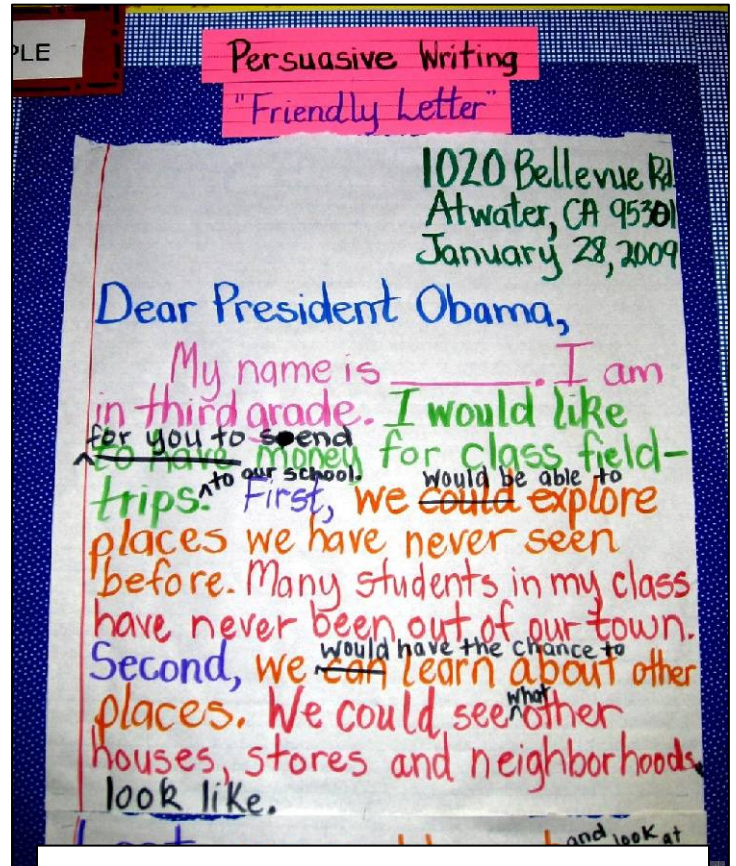 PLE
Persuasive Writing
"Friendly Letter"
1020 Bellevue Rd.
Atwater, CA 95301
January 28, 2009
Dear President Obama,
My name is ______. I am
in third grade. I would like
for you to send
to have money for class field-
trips. ^to our school. First, we could would be able to explore
places we have never seen
before. Many students in my class
have never been out of our town.
would have the chance to
Second, we can learn about other
places. We could see ^what other
houses, stores and neighborhoods
look like.
and look at